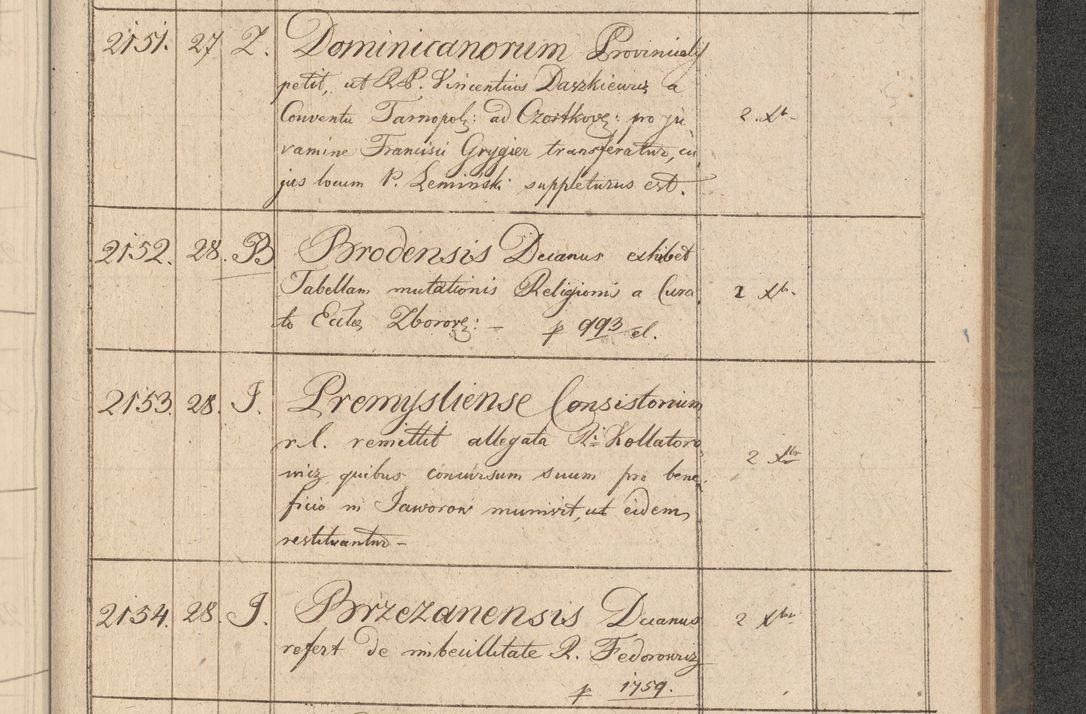 2151. 27 Z. Dominicanorum Provincialis
petit, ut R.P. Vincentius Daszkiewicz a
Conventu Tarnopol: ad Czortkov: pro ju
vamine Francisci Grygier transferatur, cu
jus locum P. Lemiński suppleturus est.
2 Xbr.
2152. 28. B Brodensis Decanus exhibet
Tabellam mutationis Religionis a Cura
to Eccles Zborov: — p 993 el.
2 Xbr.
2153. 28. J. Premysliense Consistorium
r.l. remittit allegata Rdi Kollatoro
wicz quibus concursum suum pro bene
ficio in Jaworow munivit, ut eidem
restituantur —
2 Xbr
2154. 28. J. Brzezanensis Decanus
refert de imbecillitate R. Fedorowicz
p 1759.
2 Xbr